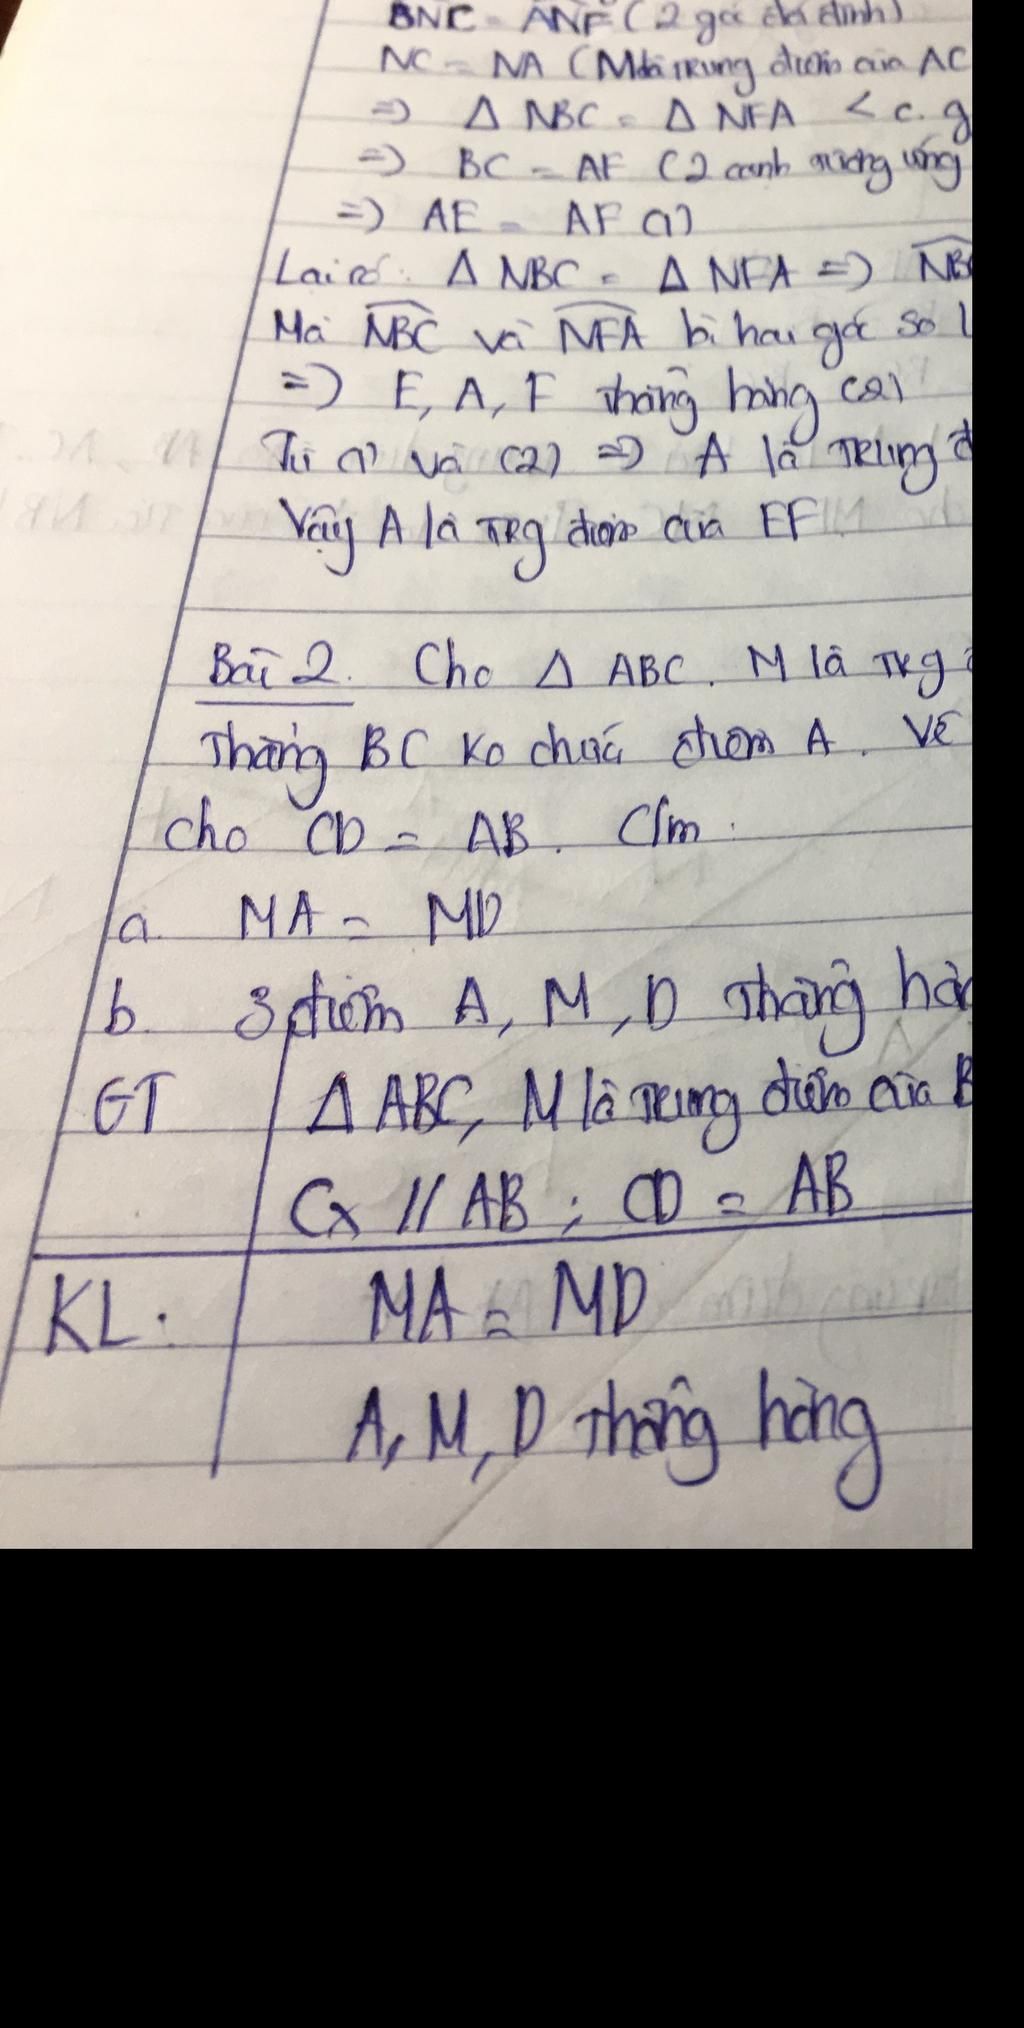 BNC = ANF (2 góc đối đỉnh)
NC = NA (M là trung điểm của AC
=> Δ NBC = Δ NFA < c. g
=> BC = AF (2 cạnh tương ứng
=> AE = AF (1)
Lại có: Δ NBC = Δ NFA => NBC
Mà NBC và NFA là hai góc so l
=> E, A, F thẳng hàng (2)
Từ (1) và (2) => A là trung đ
Vậy A là trg điểm của EF
Bài 2. Cho Δ ABC. M là trg đ
thẳng BC ko chứa điểm A. Vẽ
cho CD = AB. C/m:
a. MA = MD
b. 3 điểm A, M, D thẳng hàn
GT Δ ABC, M là trung điểm của B
Cx // AB ; CD = AB
KL. MA = MD
A, M, D thẳng hàng